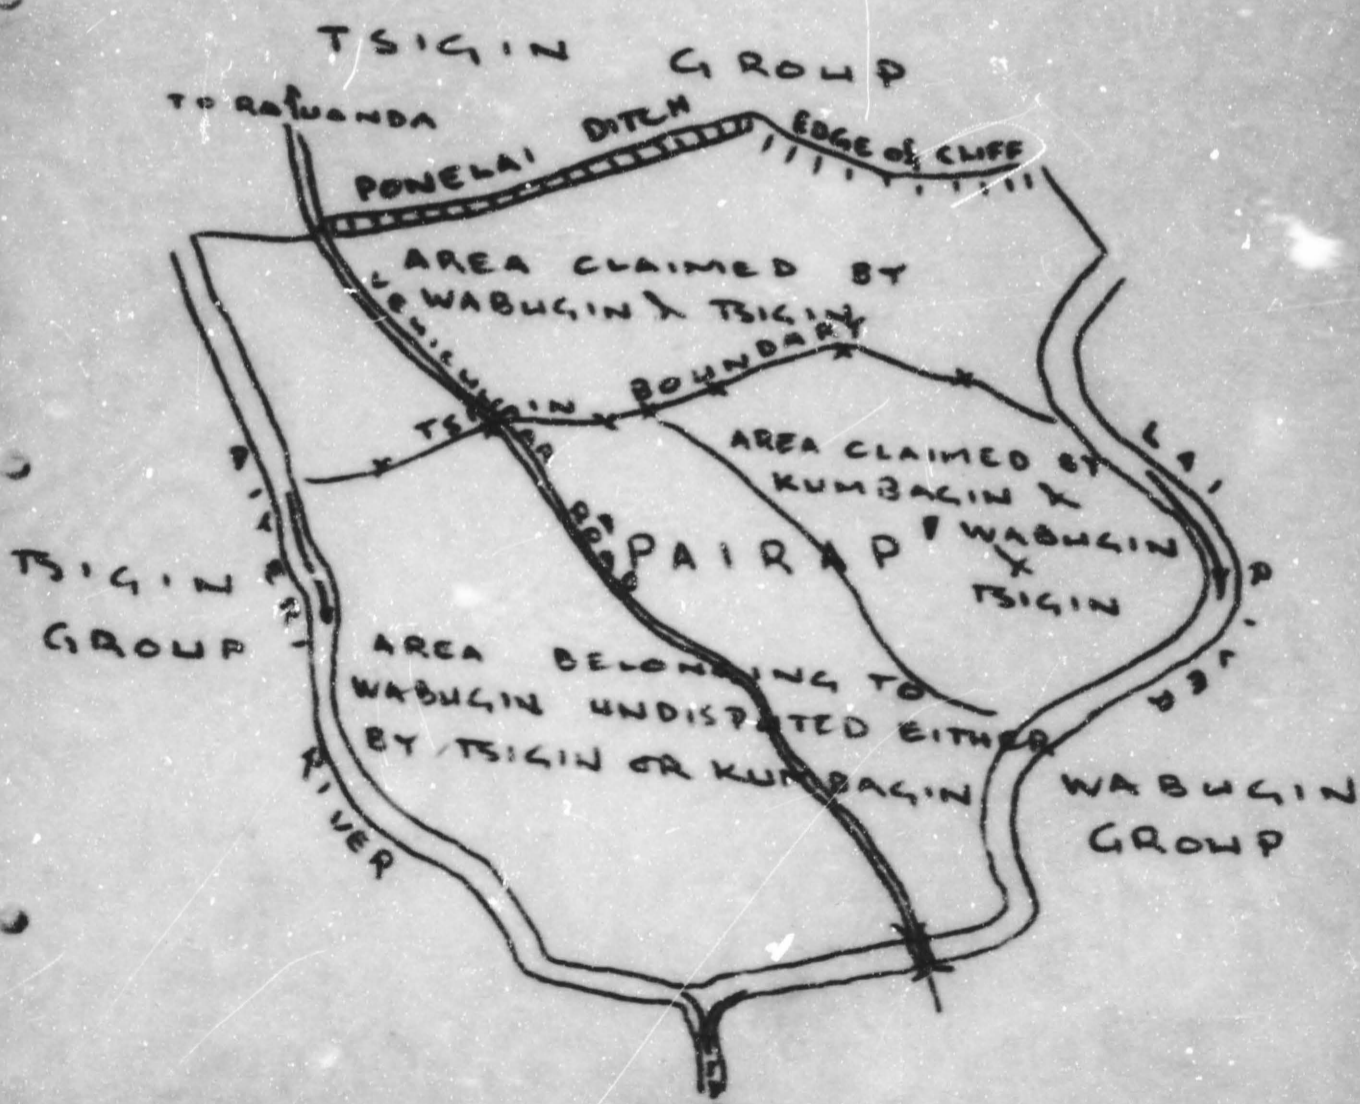 TSIGIN GROUP
TO RAUANDA
PONELAI DITCH
EDGE of CLIFF
AREA CLAIMED BY
WABUGIN & TSIGIN
VEHICULAR ROAD
TSIGIN BOUNDARY
AREA CLAIMED BY
KUMBAGIN &
WABUGIN
&
TSIGIN
PAIRAP
LAI RIVER
TSIGIN
GROUP
RIVER
AREA BELONGING TO
WABUGIN UNDISPUTED EITHER
BY TSIGIN OR KUMBAGIN
WABUGIN
GROUP